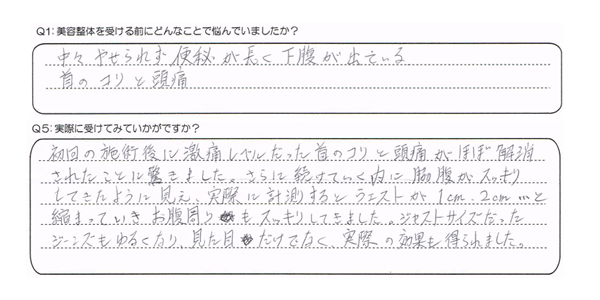 Q1:美容整体を受ける前にどんなことで悩んでいましたか？
中々 やせられず 便秘が長く 下腹が出ている
首の コリ と 頭痛
Q5:実際に受けてみていかがですか？
初回の施術後に激痛レベルだった首のコリと頭痛がほぼ解消
されたことに驚きました。さらに続けていく内に脇腹がスッキリ
してきたように見え、実際に計測するとウエストが1cm、2cm…と
縮まっていき お腹周りもスッキリしてきました。ジャストサイズだった
ジーンズもゆるくなり、見た目だけでなく、実際の効果も得られました。